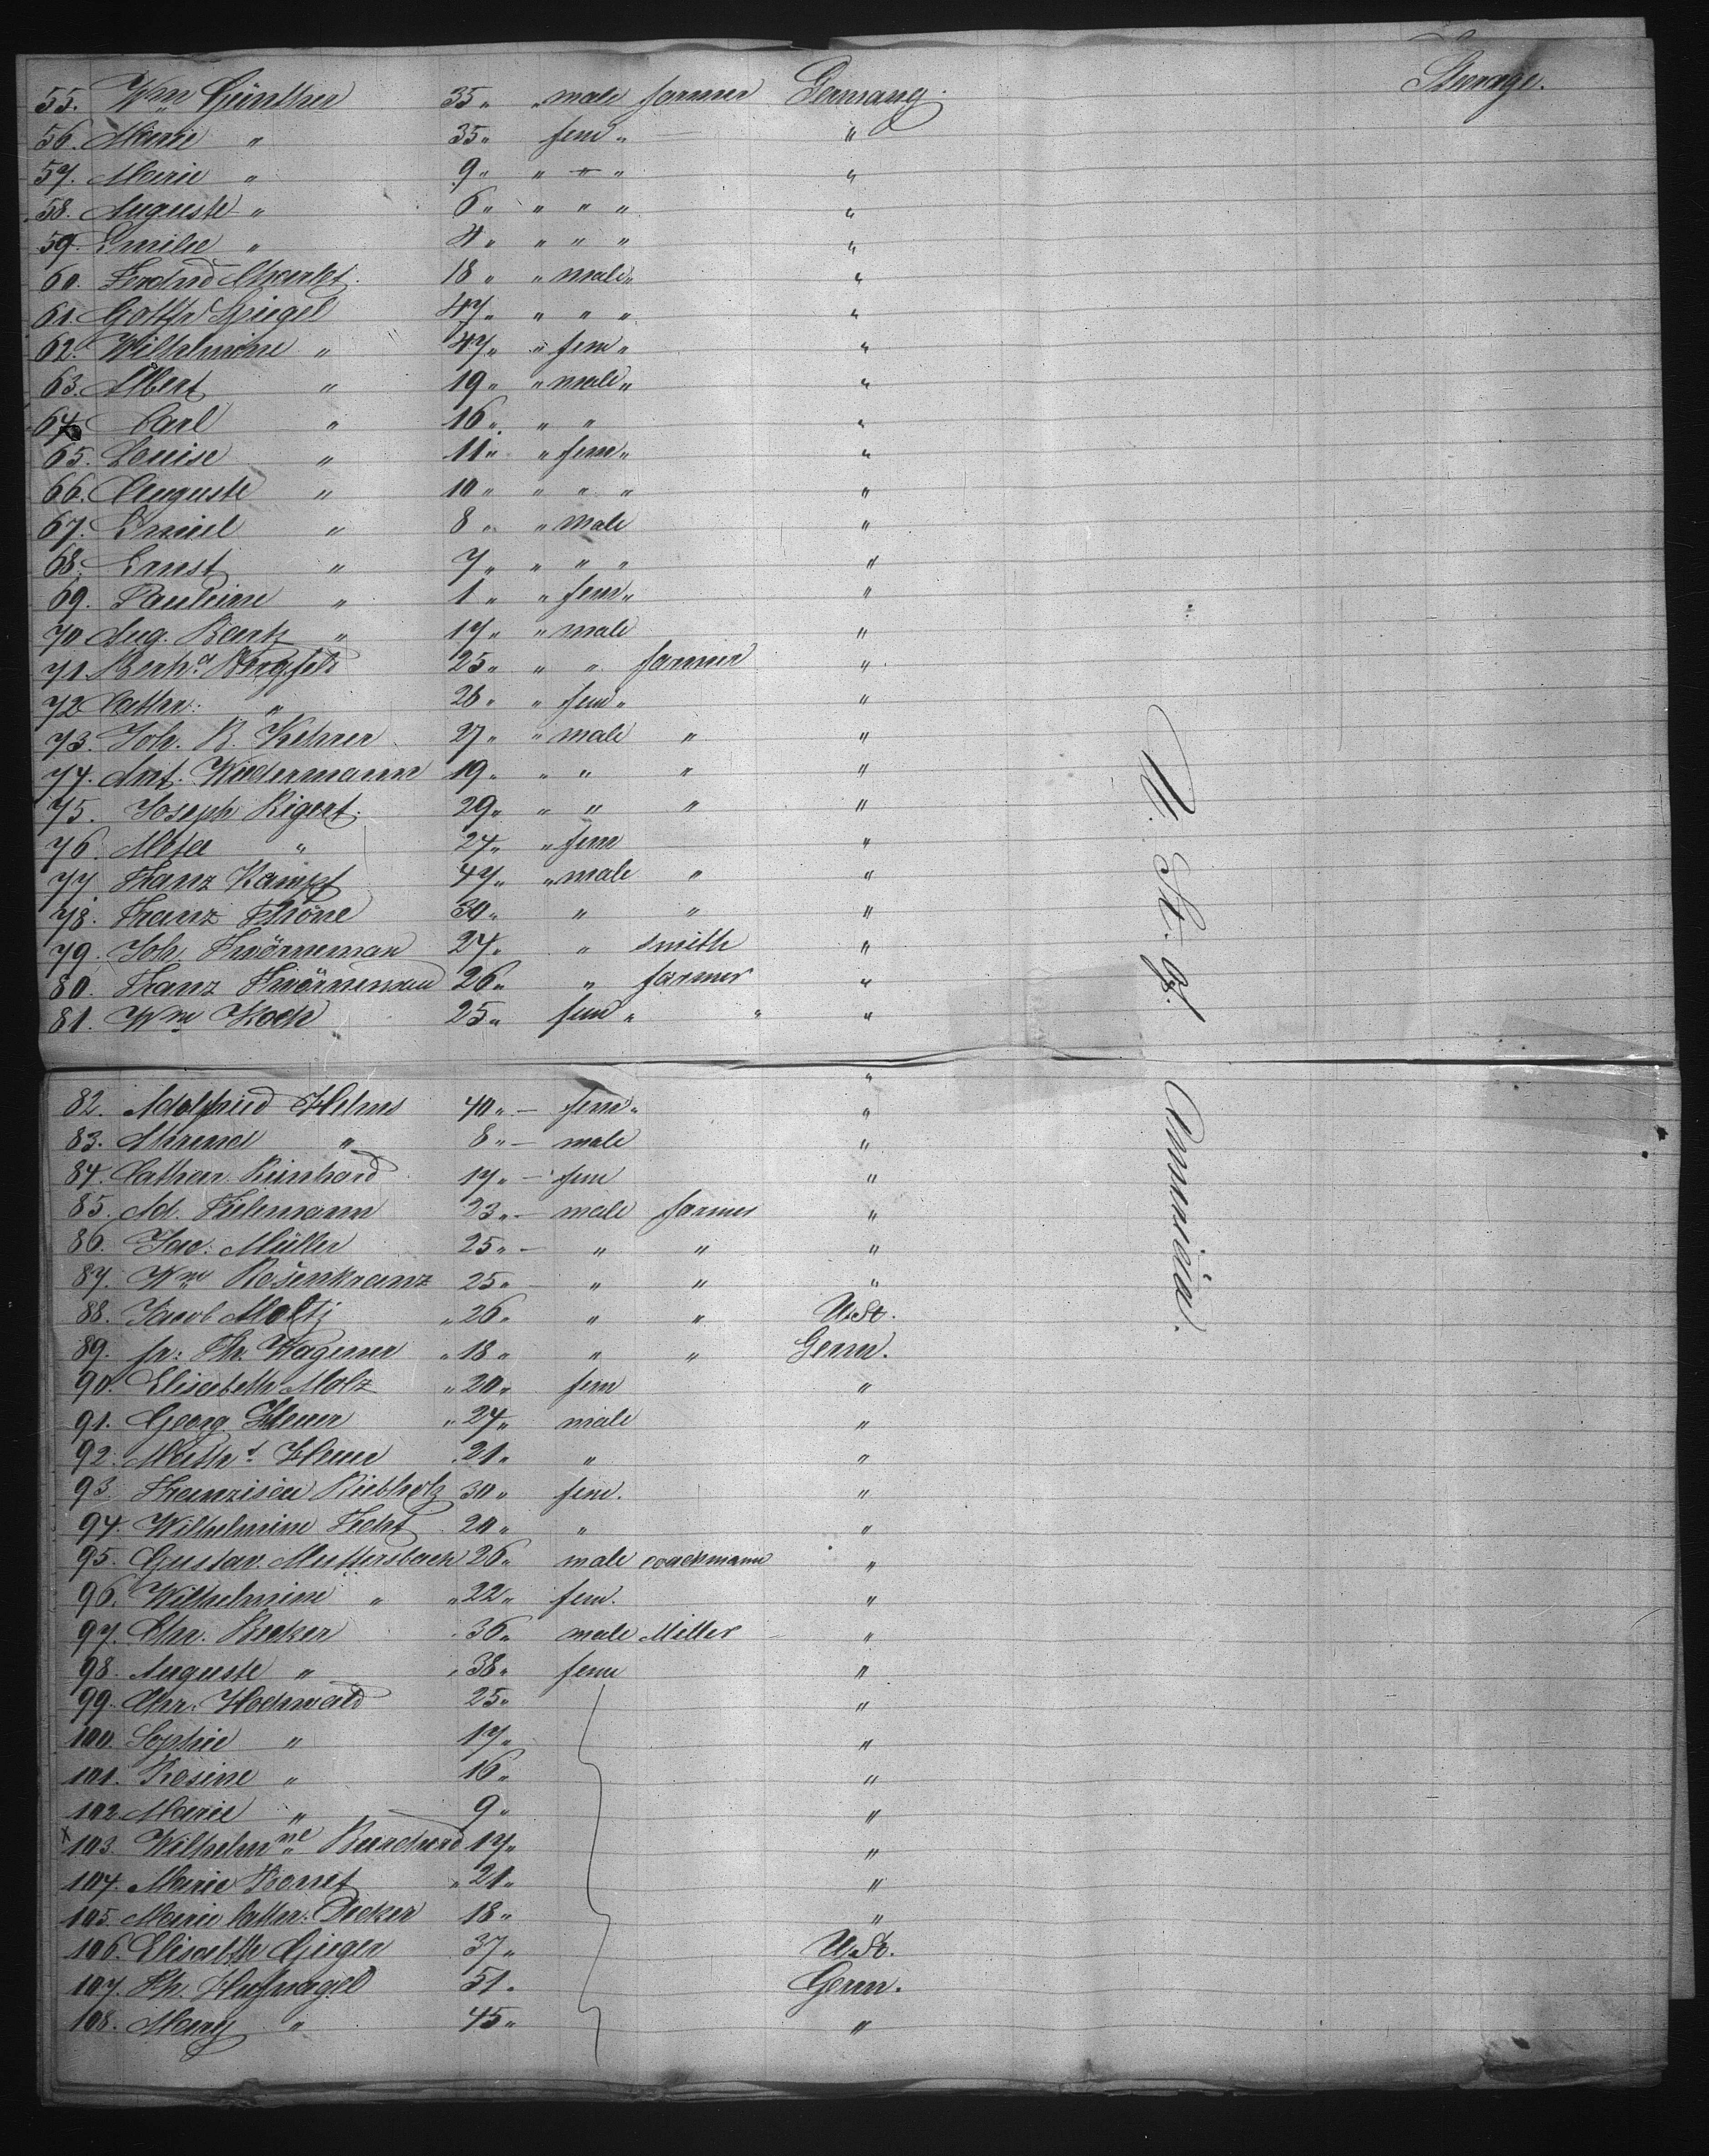 55. Wm Günther 35 " " male farmer Germany. Steerage.
56. Marie " 35 " fem " — "
57. Marie " 9 " " — " "
58. Auguste " 6 " " " " "
59. Emilie " 4 " " " " "
60. Ferdnd 18 " " male " "
61. Gotthd Spiegel 47 " " " " "
62. Wilhelmine " 47 " " fem " "
63. Albert " 19 " " male " "
64. Carl " 16 " " " "
65. Louise " 11 " " fem " "
66. Auguste " 10 " " " " "
67. Emiel " 8 " " male "
68. Ernst " 7 " " " " "
69. Pauline " 1 " " fem " "
70. Aug. " 17 " " male "
71. 25 " " " farmer "
72. Cathr: " 26 " " fem " "
73. Joh. B. Kehrer 27 " " male " "
74. Ant. Wiedermann 19 " " " " "
75. Joseph Rigert. 29 " " " " "
76. " 24 " " fem "
77. Franz Kampf 47 " " male " "
78. Franz Thöne 30 " " " "
79. Joh. 24 " " smith "
80. Franz 26 " " farmer "
81. Wm Koch 25 " fem " " "
U. St. of America.
"
82. Helms 40 " — fem " "
83. " 8 " — male "
84. Cathar. Reinhard 17 " — fem "
85. Ad. Tielemann 23 " — male farmer "
86. Jac. Müller 25 " — " " "
87. Wm Rosenkranz 25 " — " " "
88. Jacob Moltz " 26 " " " U.St.
89. fr: Th. Wagener " 18 " " " Germ.
90. Elisabeth Molz " 20 " fem "
91. Georg Heuer " 24 " male "
92. Heuer 21 " " "
93. Franzisca Riebholz 30 " fem. "
94. Wilhelmine Fecht 20 " " "
95. Gustav. Muttersbach 26 " male coachmann "
96. Wilhelmine " " 22 " fem. "
97. Chr. Becker 36 " male Miller "
98. Auguste " " 38 " fem "
99. Chr. Hochwald 25 " "
100. Sophie " 17 " "
101. Rosine " 16 " "
102. Marie " 9 " "
x 103. Wilhelmne Burchard 17 " "
104. Marie " 21 " "
105. Marie Cathr: Decker 18 " "
106. Elisabeth Gieger 37 " U.St.
107. Ph. Hufnagel 51 " Germ.
108. Mary " 45 " "